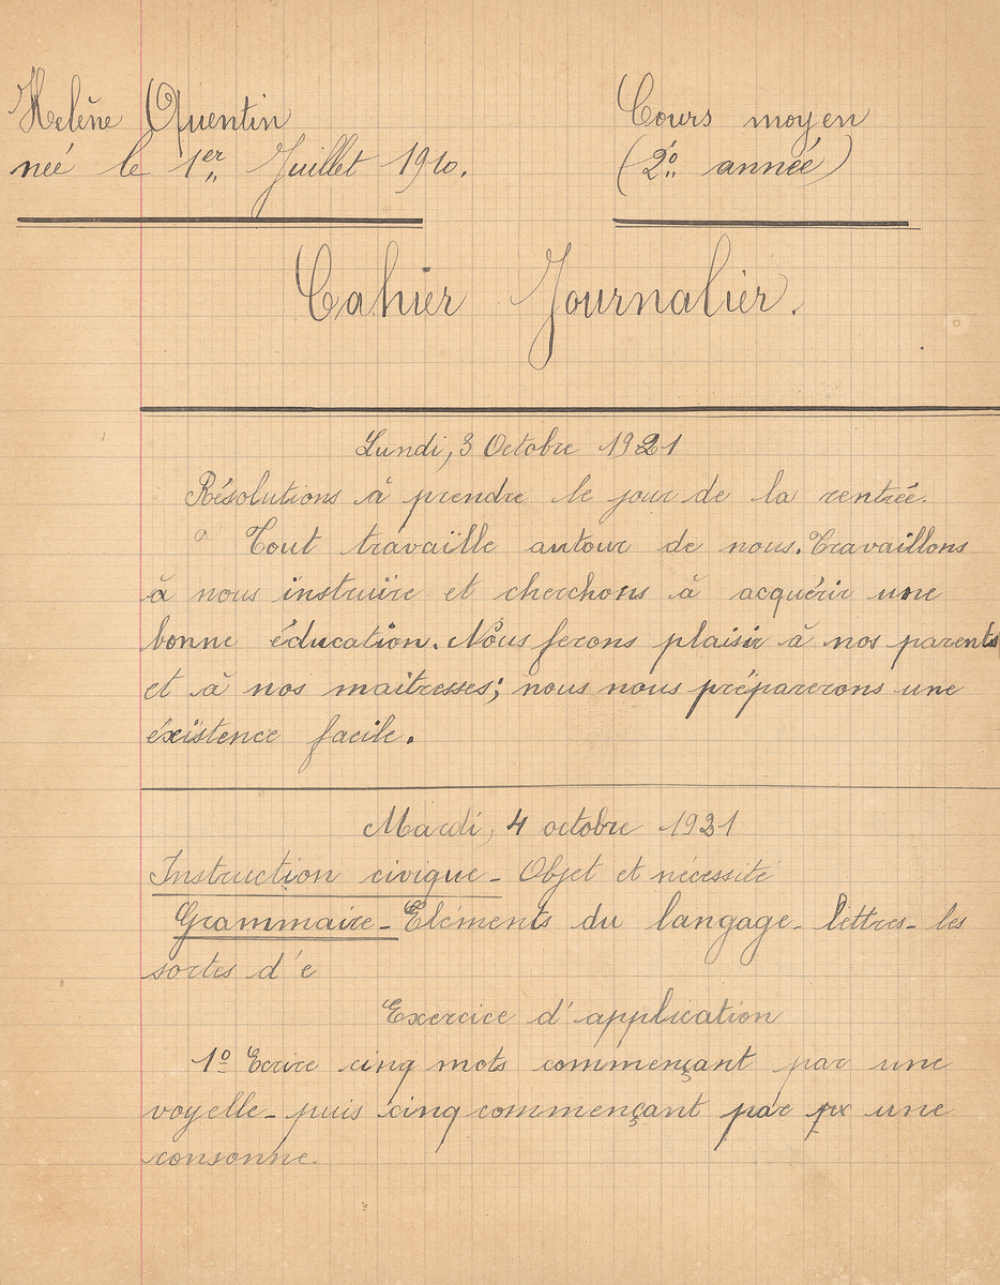 Helène Quentin
Cours moyen
née le 1er Juillet 1910.
(2º année)
Cahier Journalier.
Lundi, 3 Octobre 1921
Résolutions à prendre le jour de la rentrée.
Tout travaille autour de nous. Travaillons
à nous instruire et cherchons à acquérir une
bonne éducation. Nous ferons plaisir à nos parents
et à nos maitresses; nous nous préparerons une
éxistence facile.
Mardi, 4 octobre 1921
Instruction civique - Objet et nécessité
Grammaire - Eléments du langage - lettres - les
sortes d'e
Exercice d'application
1º Ecrire cinq mots commençant par une
voyelle - puis cinq commençant par une
consonne.